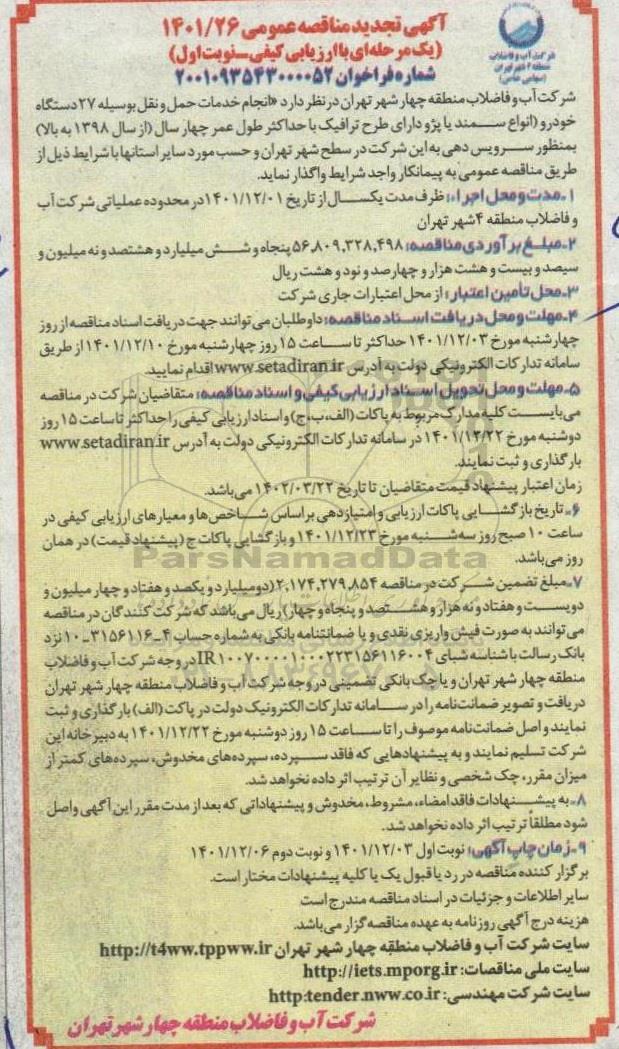 آگهی تجدید مناقصه عمومی ۱۴۰۱/۲۶
(یک مرحله‌ای با ارزیابی کیفی_نوبت اول)
شماره فراخوان ۲۰۰۱۰۹۳۵۴۳۰۰۰۰۵۲
شرکت آب و فاضلاب
منطقه ۴ شهر تهران
(سهامی خاص)
شرکت آب و فاضلاب منطقه چهار شهر تهران در نظر دارد «انجام خدمات حمل و نقل بوسیله ۲۷ دستگاه
خودرو (انواع سمند یا پژو دارای طرح ترافیک با حداکثر طول عمر چهار سال (از سال ۱۳۹۸ به بالا)
بمنظور سرویس دهی به این شرکت در سطح شهر تهران و حسب مورد سایر استانها با شرایط ذیل از
طریق مناقصه عمومی به پیمانکار واجد شرایط واگذار نماید.
۱_مدت و محل اجراء: ظرف مدت یکسال از تاریخ ۱۴۰۱/۱۲/۰۱ در محدوده عملیاتی شرکت آب
و فاضلاب منطقه ۴ شهر تهران
۲_مبلغ برآوردی مناقصه: ۵۶,۸۰۹,۳۲۸,۴۹۸ پنجاه و شش میلیارد و هشتصد و نه میلیون و
سیصد و بیست و هشت هزار و چهارصد و نود و هشت ریال
۳_محل تأمین اعتبار: از محل اعتبارات جاری شرکت
۴_مهلت و محل دریافت اسناد مناقصه: داوطلبان می‌توانند جهت دریافت اسناد مناقصه از روز
چهارشنبه مورخ ۱۴۰۱/۱۲/۰۳ حداکثر تا ساعت ۱۵ روز چهارشنبه مورخ ۱۴۰۱/۱۲/۱۰ از طریق
سامانه تدارکات الکترونیکی دولت به آدرس www.setadiran.ir اقدام نمایید.
۵_مهلت و محل تحویل اسناد ارزیابی کیفی و اسناد مناقصه: متقاضیان شرکت در مناقصه
می‌بایست کلیه مدارک مربوط به پاکات (الف، ب، ج) و اسناد ارزیابی کیفی را حداکثر تا ساعت ۱۵ روز
دوشنبه مورخ ۱۴۰۱/۱۲/۲۲ در سامانه تدارکات الکترونیکی دولت به آدرس www.setadiran.ir
بارگذاری و ثبت نمایند.
زمان اعتبار پیشنهاد قیمت متقاضیان تا تاریخ ۱۴۰۲/۰۳/۲۲ می‌باشد.
۶_تاریخ بازگشایی پاکات ارزیابی و امتیازدهی براساس شاخص‌ها و معیارهای ارزیابی کیفی در
ساعت ۱۰ صبح روز سه‌شنبه مورخ ۱۴۰۱/۱۲/۲۳ و بازگشایی پاکات ج (پیشنهاد قیمت) در همان
روز می‌باشد.
ParsNamadData
۷_مبلغ تضمین شرکت در مناقصه ۲,۱۷۴,۲۷۹,۸۵۴ (دو میلیارد و یکصد و هفتاد و چهار میلیون و
دویست و هفتاد و نه هزار و هشتصد و پنجاه و چهار) ریال می‌باشد که شرکت کنندگان در مناقصه
می‌توانند به صورت فیش واریزی نقدی و یا ضمانتنامه بانکی به شماره حساب ۴_۳۱۵۶۱۱۶_۱۰ نزد
بانک رسالت با شناسه شبای IR۱۰۰۷۰۰۰۰۱۰۰۰۲۲۳۱۵۶۱۱۶۰۰۴ در وجه شرکت آب و فاضلاب
منطقه چهار شهر تهران و یا چک بانکی تضمینی در وجه شرکت آب و فاضلاب منطقه چهار شهر تهران
دریافت و تصویر ضمانت‌نامه را در سامانه تدارکات الکترونیک دولت در پاکت (الف) بارگذاری و ثبت
نمایند و اصل ضمانت‌نامه موصوف را تا ساعت ۱۵ روز دوشنبه مورخ ۱۴۰۱/۱۲/۲۲ به دبیرخانه این
شرکت تسلیم نمایند و به پیشنهادهایی که فاقد سپرده، سپرده‌های مخدوش، سپرده‌های کمتر از
میزان مقرر، چک شخصی و نظایر آن ترتیب اثر داده نخواهد شد.
۸_به پیشنهادات فاقد امضاء، مشروط، مخدوش و پیشنهاداتی که بعد از مدت مقرر این آگهی واصل
شود مطلقاً ترتیب اثر داده نخواهد شد.
۹_زمان چاپ آگهی: نوبت اول ۱۴۰۱/۱۲/۰۳ و نوبت دوم ۱۴۰۱/۱۲/۰۶
برگزار کننده مناقصه در رد یا قبول یک یا کلیه پیشنهادات مختار است.
سایر اطلاعات و جزئیات در اسناد مناقصه مندرج است
هزینه درج آگهی روزنامه به عهده مناقصه‌گزار می‌باشد.
سایت شرکت آب و فاضلاب منطقه چهار شهر تهران http://t4ww.tppww.ir
سایت ملی مناقصات: http://iets.mporg.ir
سایت شرکت مهندسی: http:tender.nww.co.ir
شرکت آب و فاضلاب منطقه چهار شهر تهران